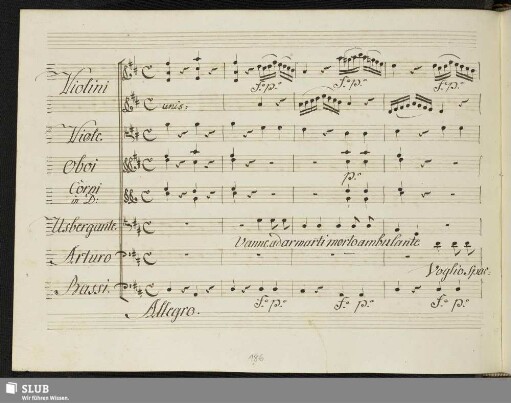 Violini
f.º p.º f.º p.º f.º p.º
unis:
Viole.
Oboi
p.º
Corni
in D:
Usbergante.
Vanne ad armarti morto ambulante.
Arturo
Voglio spac-
Bassi.
f.º p.º f.º p.º f.º p.º
Allegro.
196
SLUB
Wir führen Wissen.